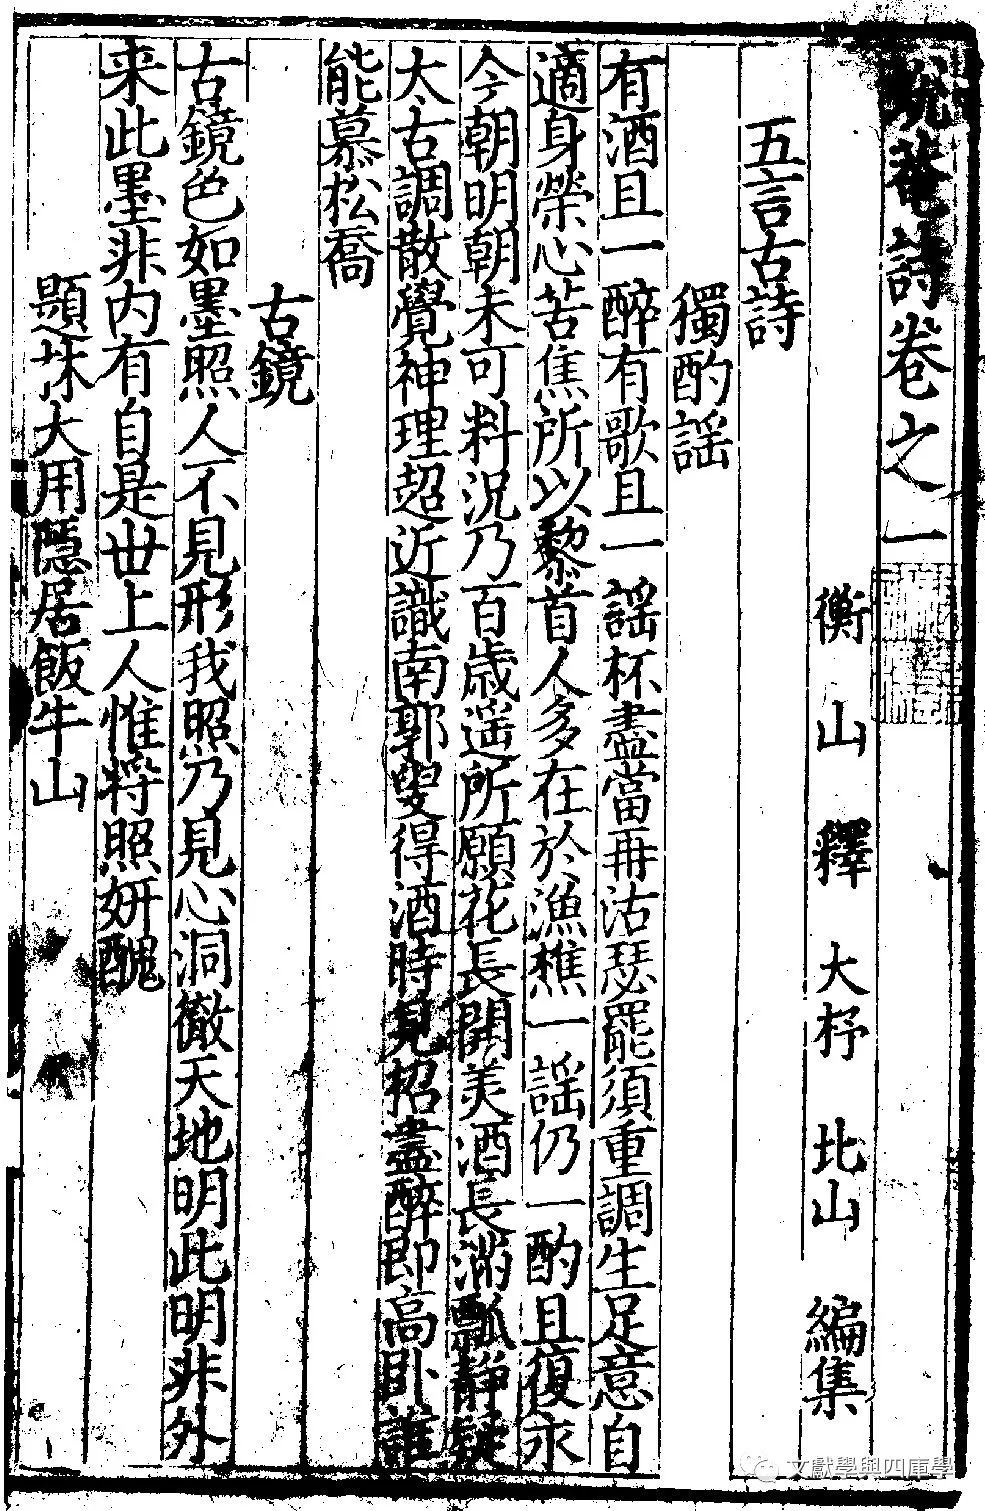 蛻菴詩卷之一
衡山釋大杼北山編集
五言古詩
獨酌謡
有酒且一醉有歌且一謡杯盡當再沽瑟罷須重調生足意自
適身榮心苦焦所以黎首人多在於漁樵一謡仍一酌且復永
今朝明朝未可料況乃百歳遥所願花長開美酒長滿瓢静疑
太古調散覺神理超近識南郭叟得酒時見招盡醉即高卧誰
能慕松喬
古鏡
古鏡色如墨照人不見形我照乃見心洞徹天地明此明非外
来此墨非内有自是丗上人惟将照妍醜
題林大用隱居飯牛山
文獻學與四庫學